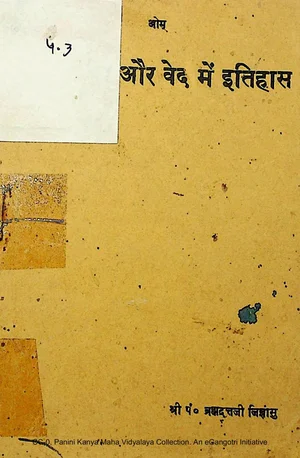 ओ३म्
५.३
और वेद में इतिहास
श्री पं० ब्रह्मदत्तजी जिज्ञासु
CC-0, Panini Kanya Maha Vidyalaya Collection. An eGangotri Initiative.